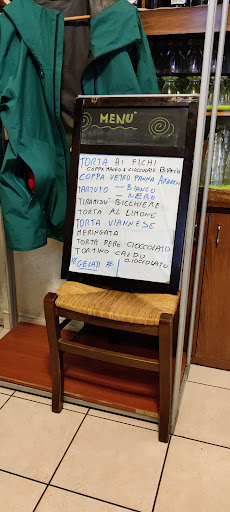 MENU'
TORTA AI FICHI
COPPA MANGO E CIOCCOLATO BIANCO
COPPA VETRO PANNA
TARTUFO - BIANCO
- NERO
TIRAMISU' BICCHIERE
TORTA AL LIMONE
TORTA VIANNESE
MERINGATA
TORTA PERE CIOCCOLATO
TORTINO CALDO
CIOCCOLATO
GELATI